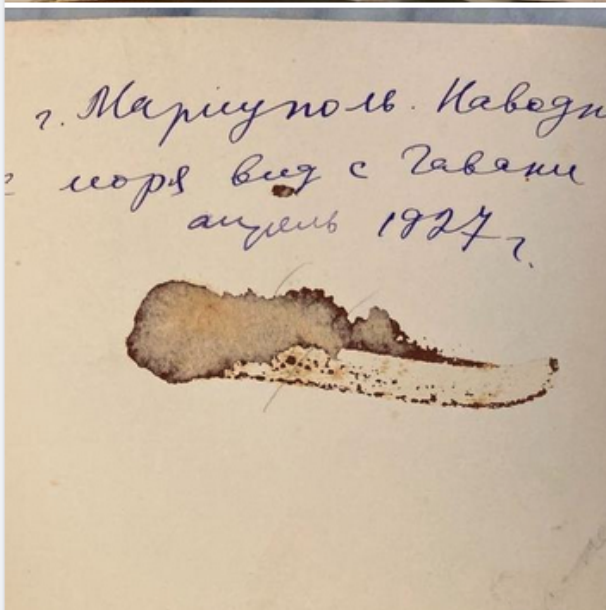 г. Мариуполь. Наводн
с моря вид с Гавани
апрель 1927 г.